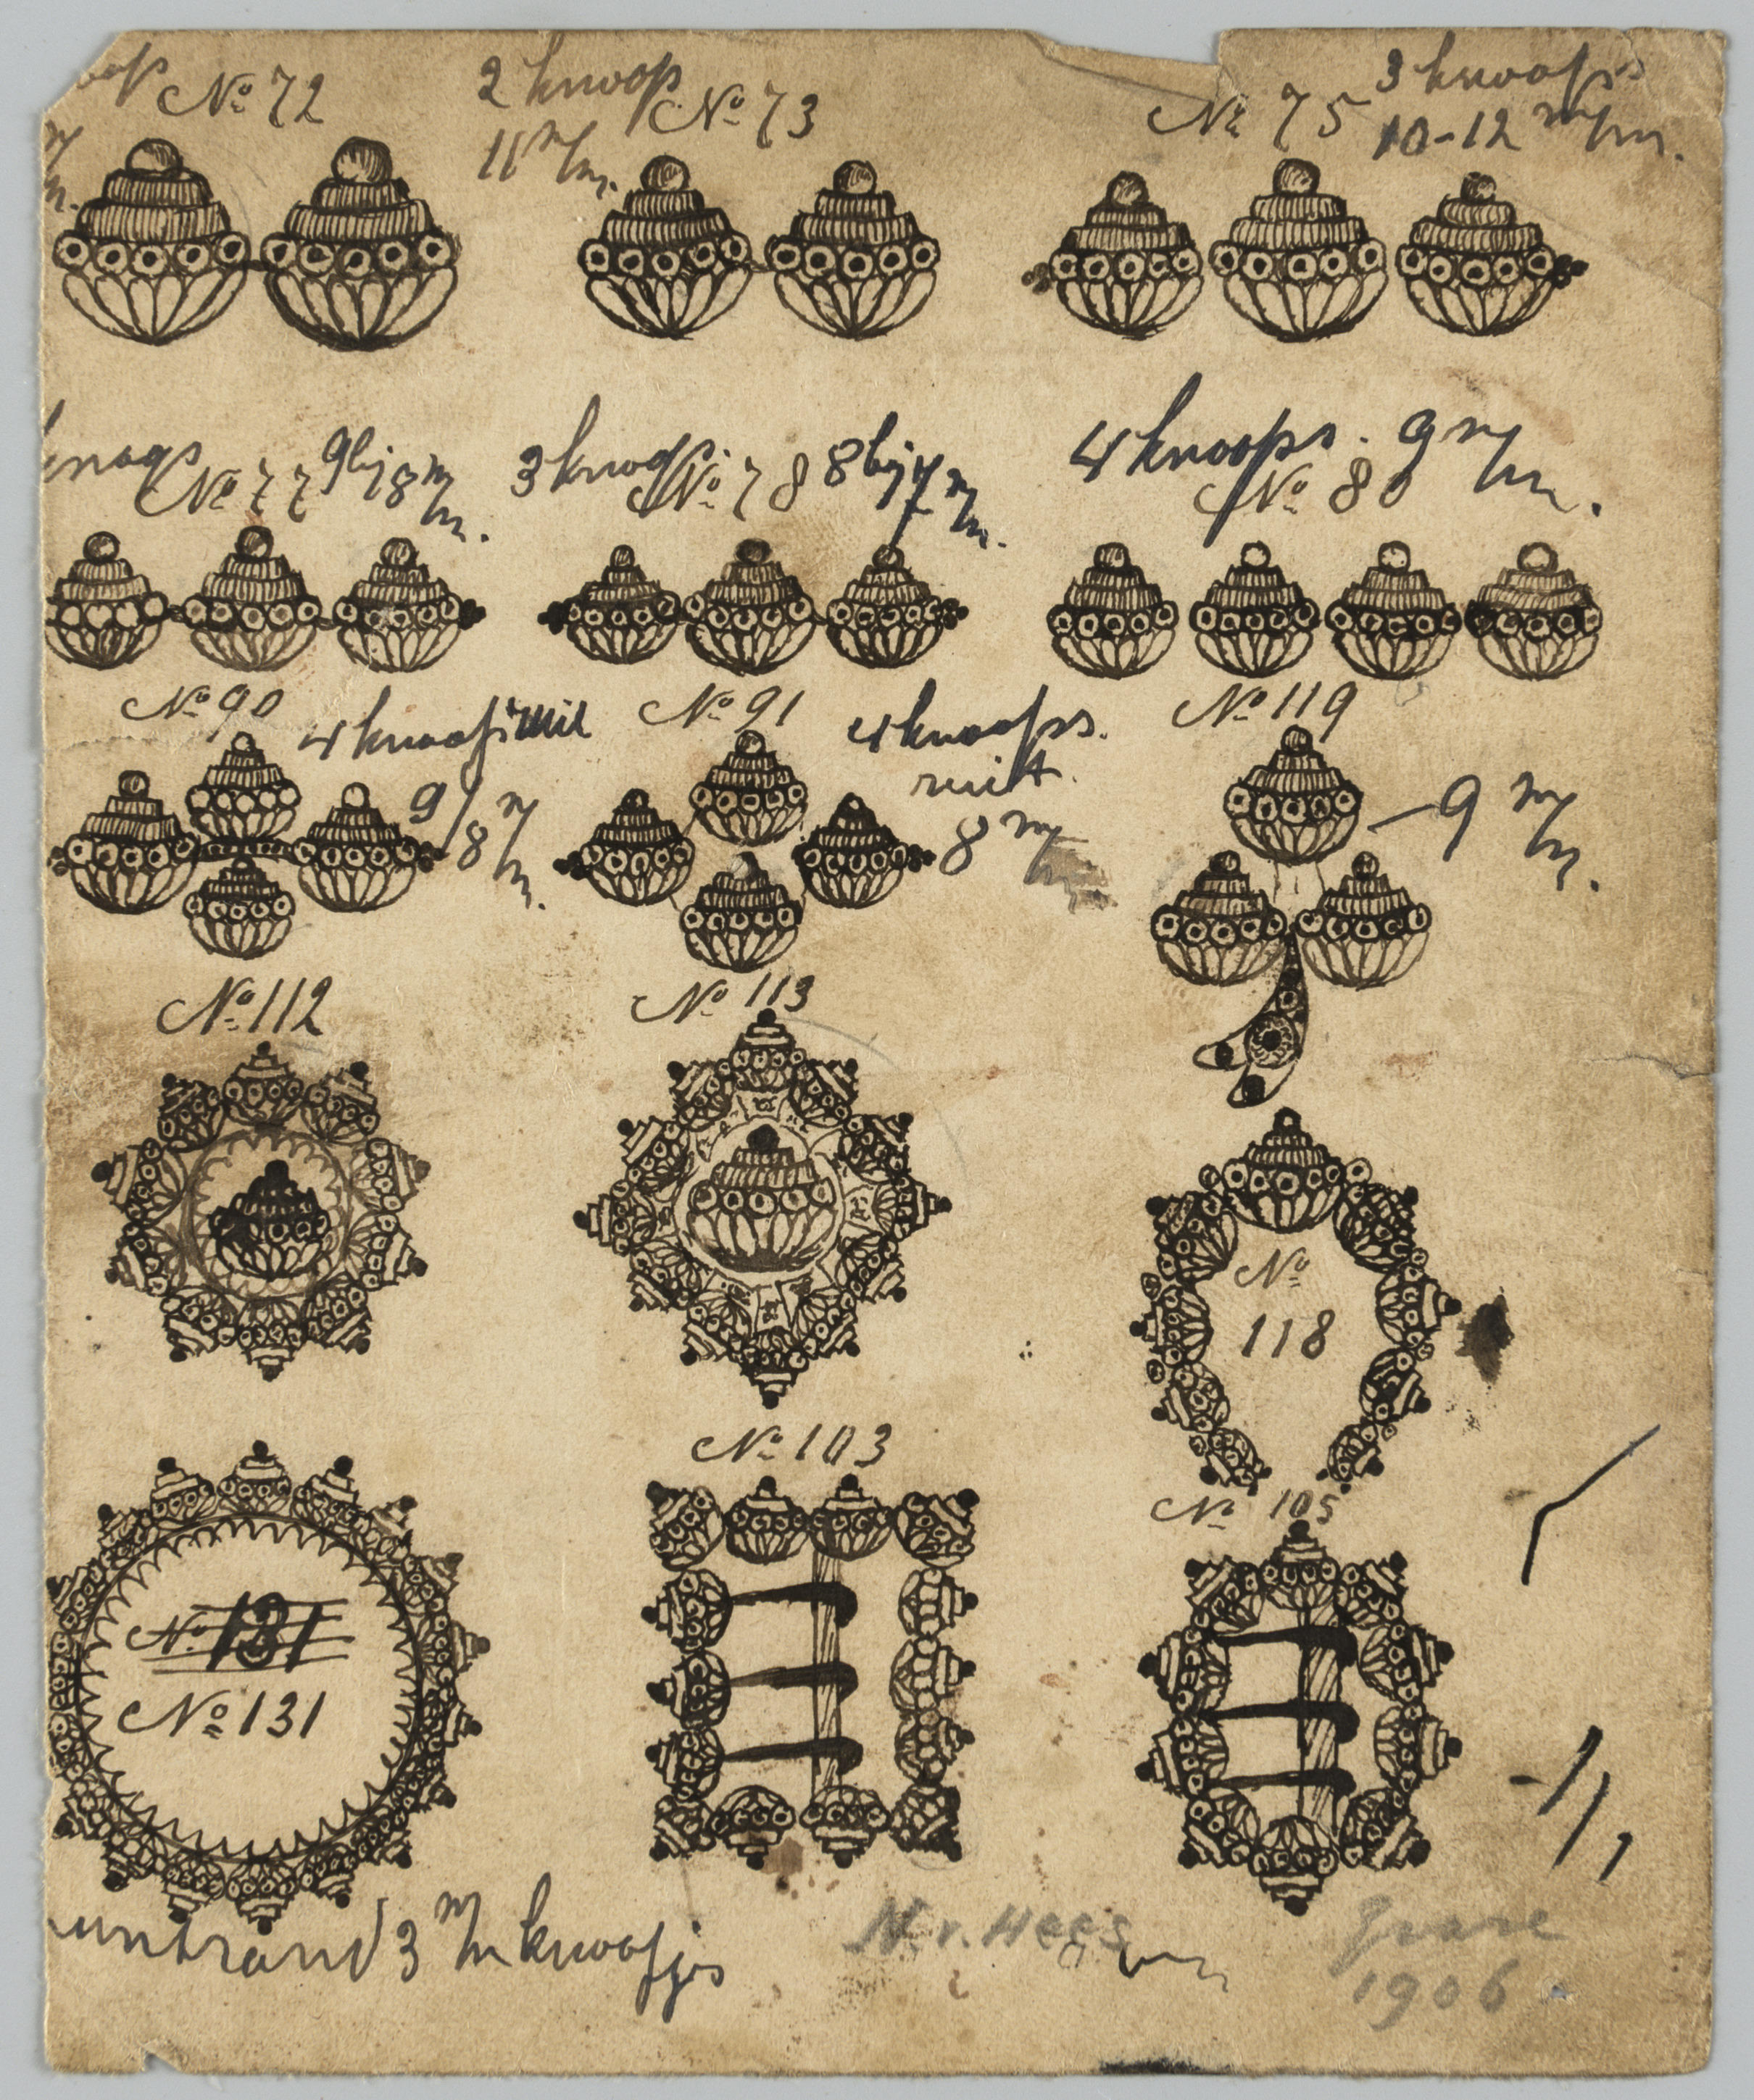 No 72
2 knoops
11 m/m.
No 73
No 75
3 knoops
10-12 m/m.
No 77
9 bij 8 m/m.
3 knoops.
No 78
8 bij 7 m/m.
4 knoops. 9 m/m.
No 80
No 90
4 knoops
9/8 m/m.
No 91
4 knoops.
ruit.
8 m/m
No 119
9 m/m.
No 112
No 113
No
118
No 103
No 105
No 131
No 131
3 m/m knoopjes
N. v. Hees
1906.